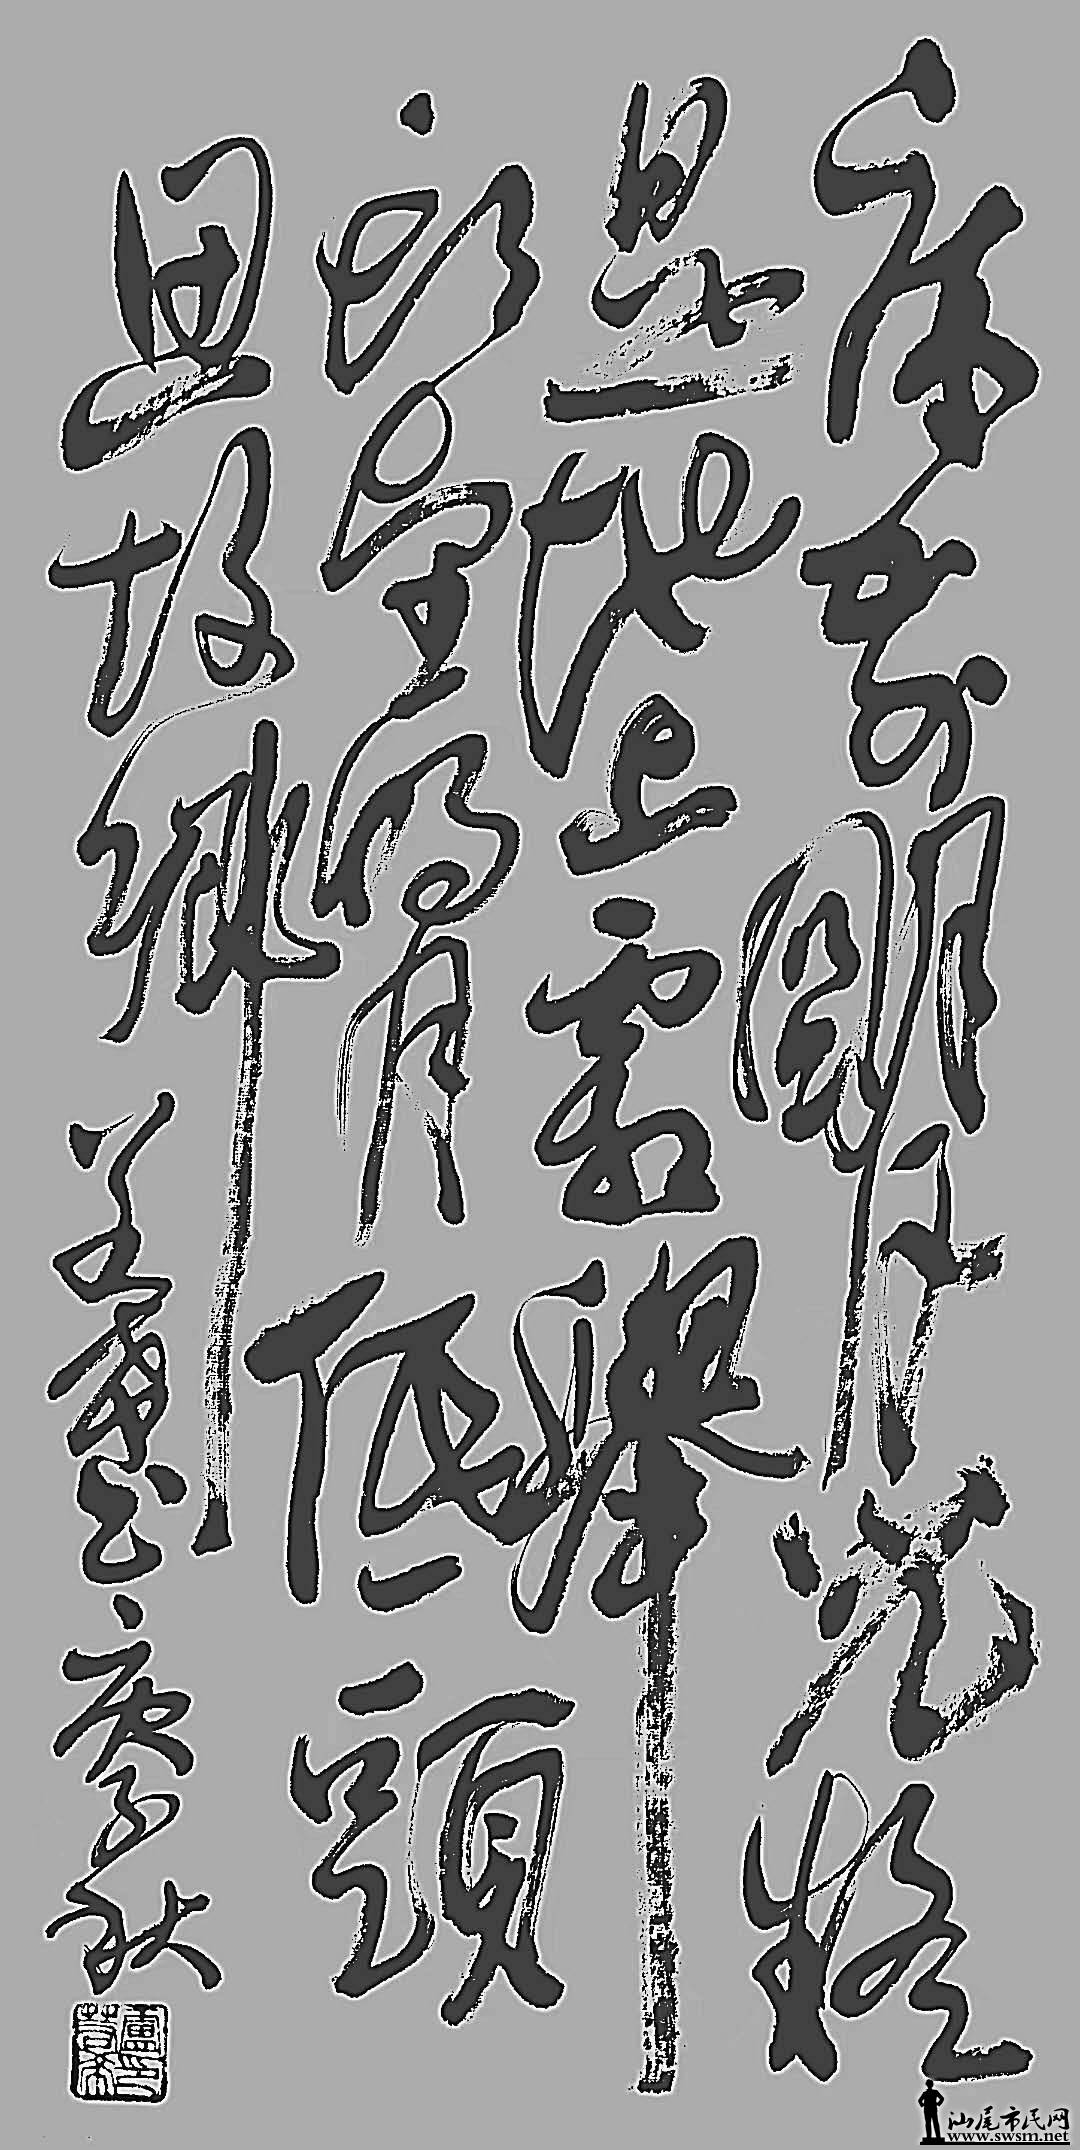 床前明月光疑
是地上霜舉
頭望明月低頭
思故鄉
汕尾市民网
www.swsm.net